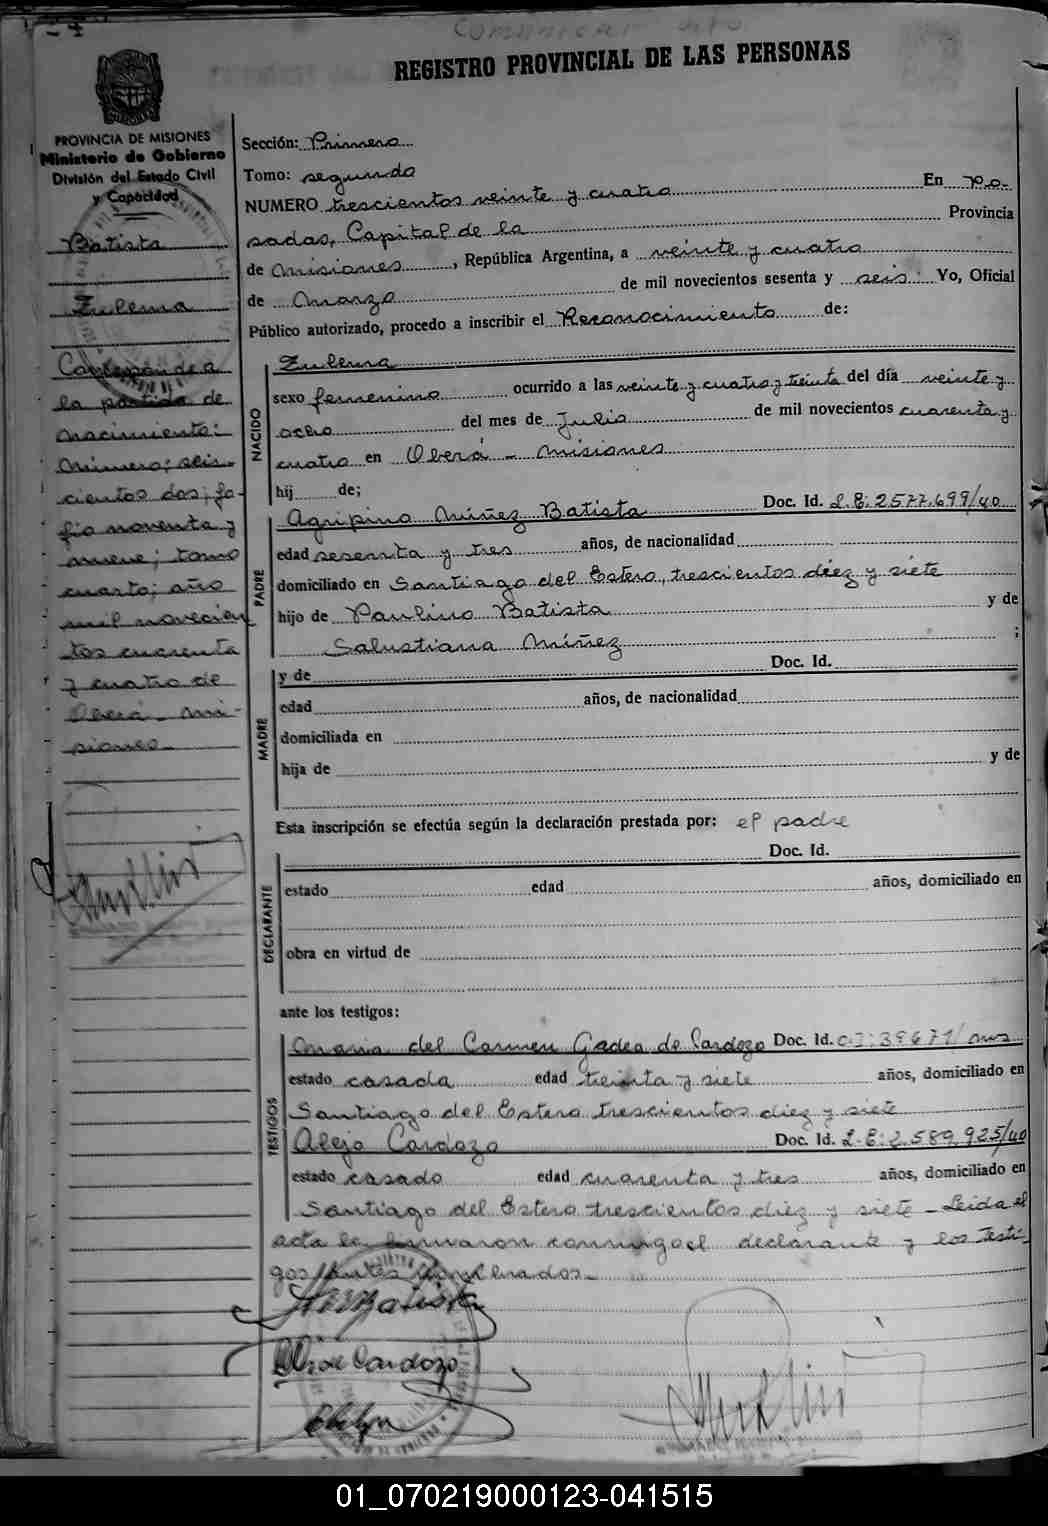 Comunicar
REGISTRO PROVINCIAL DE LAS PERSONAS
PROVINCIA DE MISIONES
Ministerio de Gobierno
División del Estado Civil
y Capacidad
Batista
Zulema
Corresponde a
la partida de
nacimiento:
número; seis-
cientos dos; fo-
lio noventa y
nueve; tomo
cuarto; año
mil novecien
tos cuarenta
y cuatro de
Oberá - Mi-
siones-
Sección: Primera
Tomo: segundo
NUMERO trescientos veinte y cuatro En Po-
sadas, Capital de la Provincia
de Misiones, República Argentina, a veinte y cuatro
de Marzo de mil novecientos sesenta y seis: Yo, Oficial
Público autorizado, procedo a inscribir el Reconocimiento de:
NACIDO
Zulema
sexo femenino ocurrido a las veinte y cuatro y treinta del día veinte y
ocho del mes de Julio de mil novecientos cuarenta y
cuatro en Oberá - Misiones
hij de;
PADRE
Agripino Núñez Batista Doc. Id. L.E: 2577.699/40
edad sesenta y tres años, de nacionalidad
domiciliado en Santiago del Estero, trescientos diez y siete
hijo de Paulino Batista y de
Salustiana Núñez ;
MADRE
y de Doc. Id.
edad años, de nacionalidad
domiciliada en
hija de y de
Esta inscripción se efectúa según la declaración prestada por: el padre
DECLARANTE
Doc. Id.
estado edad años, domiciliado en
obra en virtud de
ante los testigos:
TESTIGOS
Maria del Carmen Gadea de Cardozo Doc. Id. C.I: 39671/Mns
estado casada edad treinta y siete años, domiciliado en
Santiago del Estero trescientos diez y siete
Alejo Cardozo Doc. Id. L.E: 2.589.925/40
estado casado edad cuarenta y tres años, domiciliado en
Santiago del Estero trescientos diez y siete - Leida el
acta la firmaron conmigo el declarante y los testi-
gos antes nombrados-
Batista
Cardozo
01_070219000123-041515